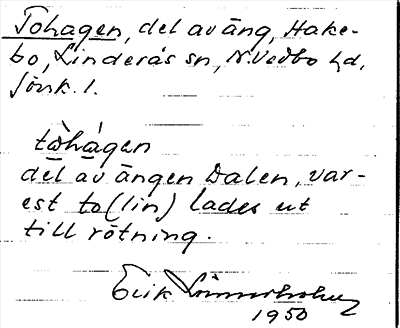 Tohagen, del av äng, Hake-
bo, Linderås sn, N. Vedbo hd.
Jönk. l.
tòhágen
del av ängen Dalen, var-
est to (lin) lades ut
till rötning.
Erik
1950